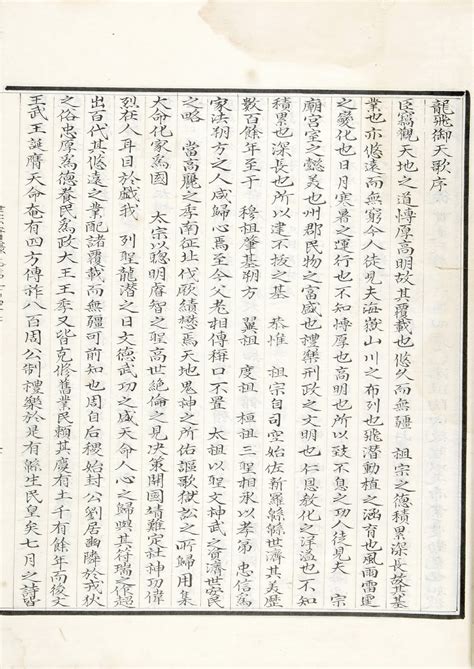 龍飛御天歌序
臣竊觀天地之道博厚高明故其覆載也悠久而無疆 祖宗之德積累深長故其基
業也亦悠遠而無窮今人徒見夫海嶽山川之布列也飛潛動植之涵育也風雨雷霆
之變化也日月寒暑之運行也不知博厚也高明也所以致不息之功人徒見夫 宗
廟宮室之懿美也州郡民物之富盛也禮樂刑政之文明也仁恩敎化之洋溢也不知
積累也深長也所以建不拔之基 恭惟 祖宗自司空始佐新羅緜緜世濟其美歷
數百餘年至于 穆祖肇基朔方 翼祖 度祖 桓祖三聖相承以孝弟忠信為
家法朔方之人咸歸心焉至今父老相傳稱口不置 太祖以聖文神武之資濟世安民
之略 當高麗之季南征北伐厥績懋焉天地鬼神之所佑謳歌獄訟之所歸用集
大命化家為國 太宗以聰明睿智之聖高世絕倫之見決策開國靖難定社神功偉
烈在人耳目於戲我 列聖龍潛之日文德武功之盛天命人心之歸與其符瑞之作超
出百代其悠遠之業配諸覆載而無疆可前知也周自后稷始封公劉居豳隣於戎狄
之俗忠厚為德養民為政大王王季又皆克修舊業民賴其慶有土千有餘年而後文
王武王誕膺天命奄有四方傳祚八百周公制禮樂於是有緜生民皇矣七月之詩皆